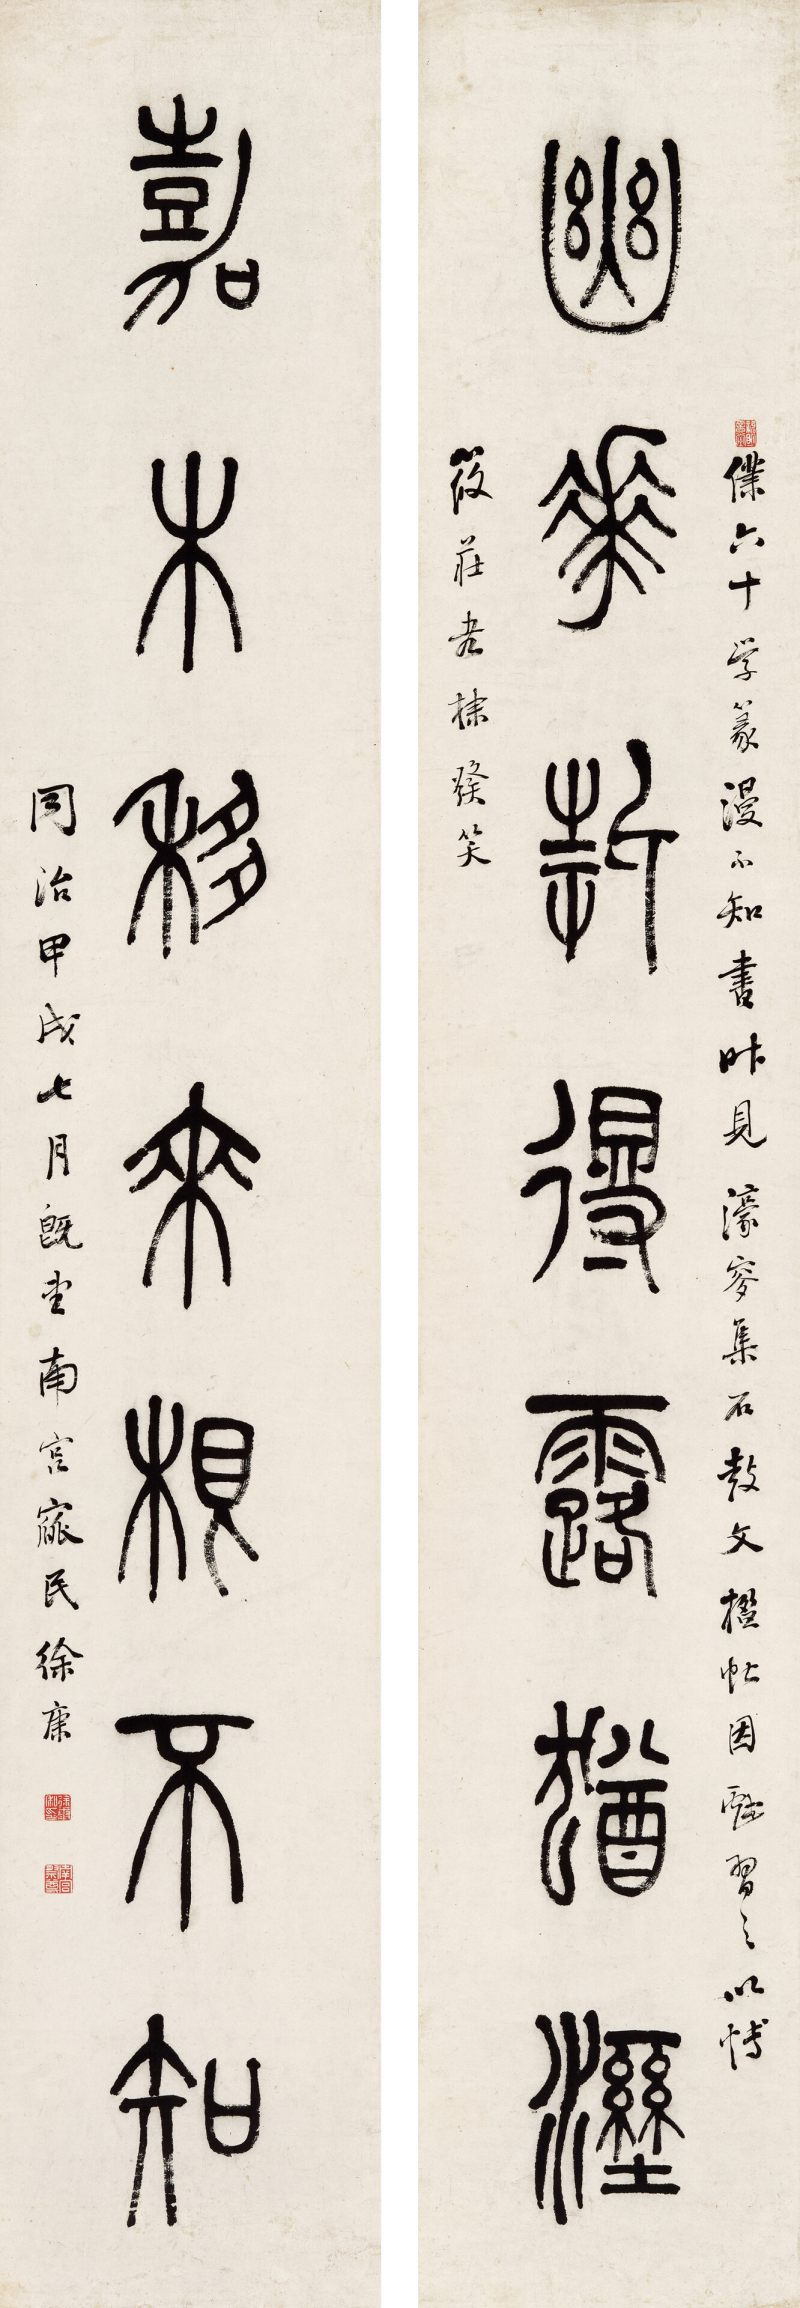 僕六十学篆漫不知書昨見濠叟集石鼓文楹帖因
習之以博
幽華折得露猶溼
筱莊老棣發笑
嘉木移來根不知
同治甲戌七月既望南宮寱民徐康